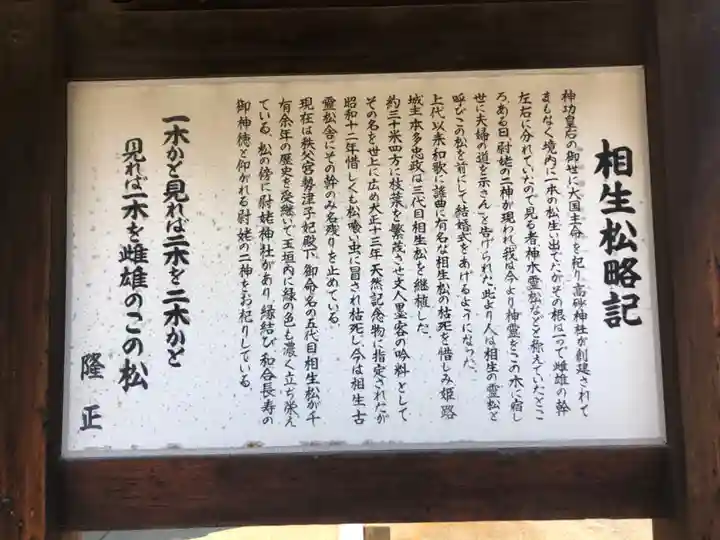 相生松略記
神功皇后の御世に大国主命を祀り高砂神社が創建されて
まもなく境内に一本の松生い出でたがその根は一つで雌雄の幹
左右に分れていたので見る者神木霊松などと称えていたとこ
ろ、ある日、尉姥の二神が現われ我は今より神霊をこの木に宿し
世に夫婦の道を示さんと告げられた。此より人は相生の霊松と
呼びこの松を前にして結婚式をあげるようになった。
上代以来和歌に謡曲に有名な相生松の枯死を惜しみ姫路
城主本多忠政は三代目相生松を継植した。
約三十米四方に枝葉を繁茂させ文人墨客の吟料として
その名を世上に広め大正十三年天然記念物に指定されたが
昭和十二年惜しくも松喰い虫に冒され枯死し今は相生古
霊松舎にその幹のみ名残りを止めている。
現在は秩父宮勢津子妃殿下御命名の五代目相生松が千
有余年の歴史を受継いで玉垣内に緑の色も濃く立ち栄え
ている。松の傍に尉姥神社があり縁結び和合長寿の
御神徳と仰がれる尉姥の二神をお祀りしている。
一木かと見れば二木を二木かと
見れば一木を雌雄のこの松
隆正